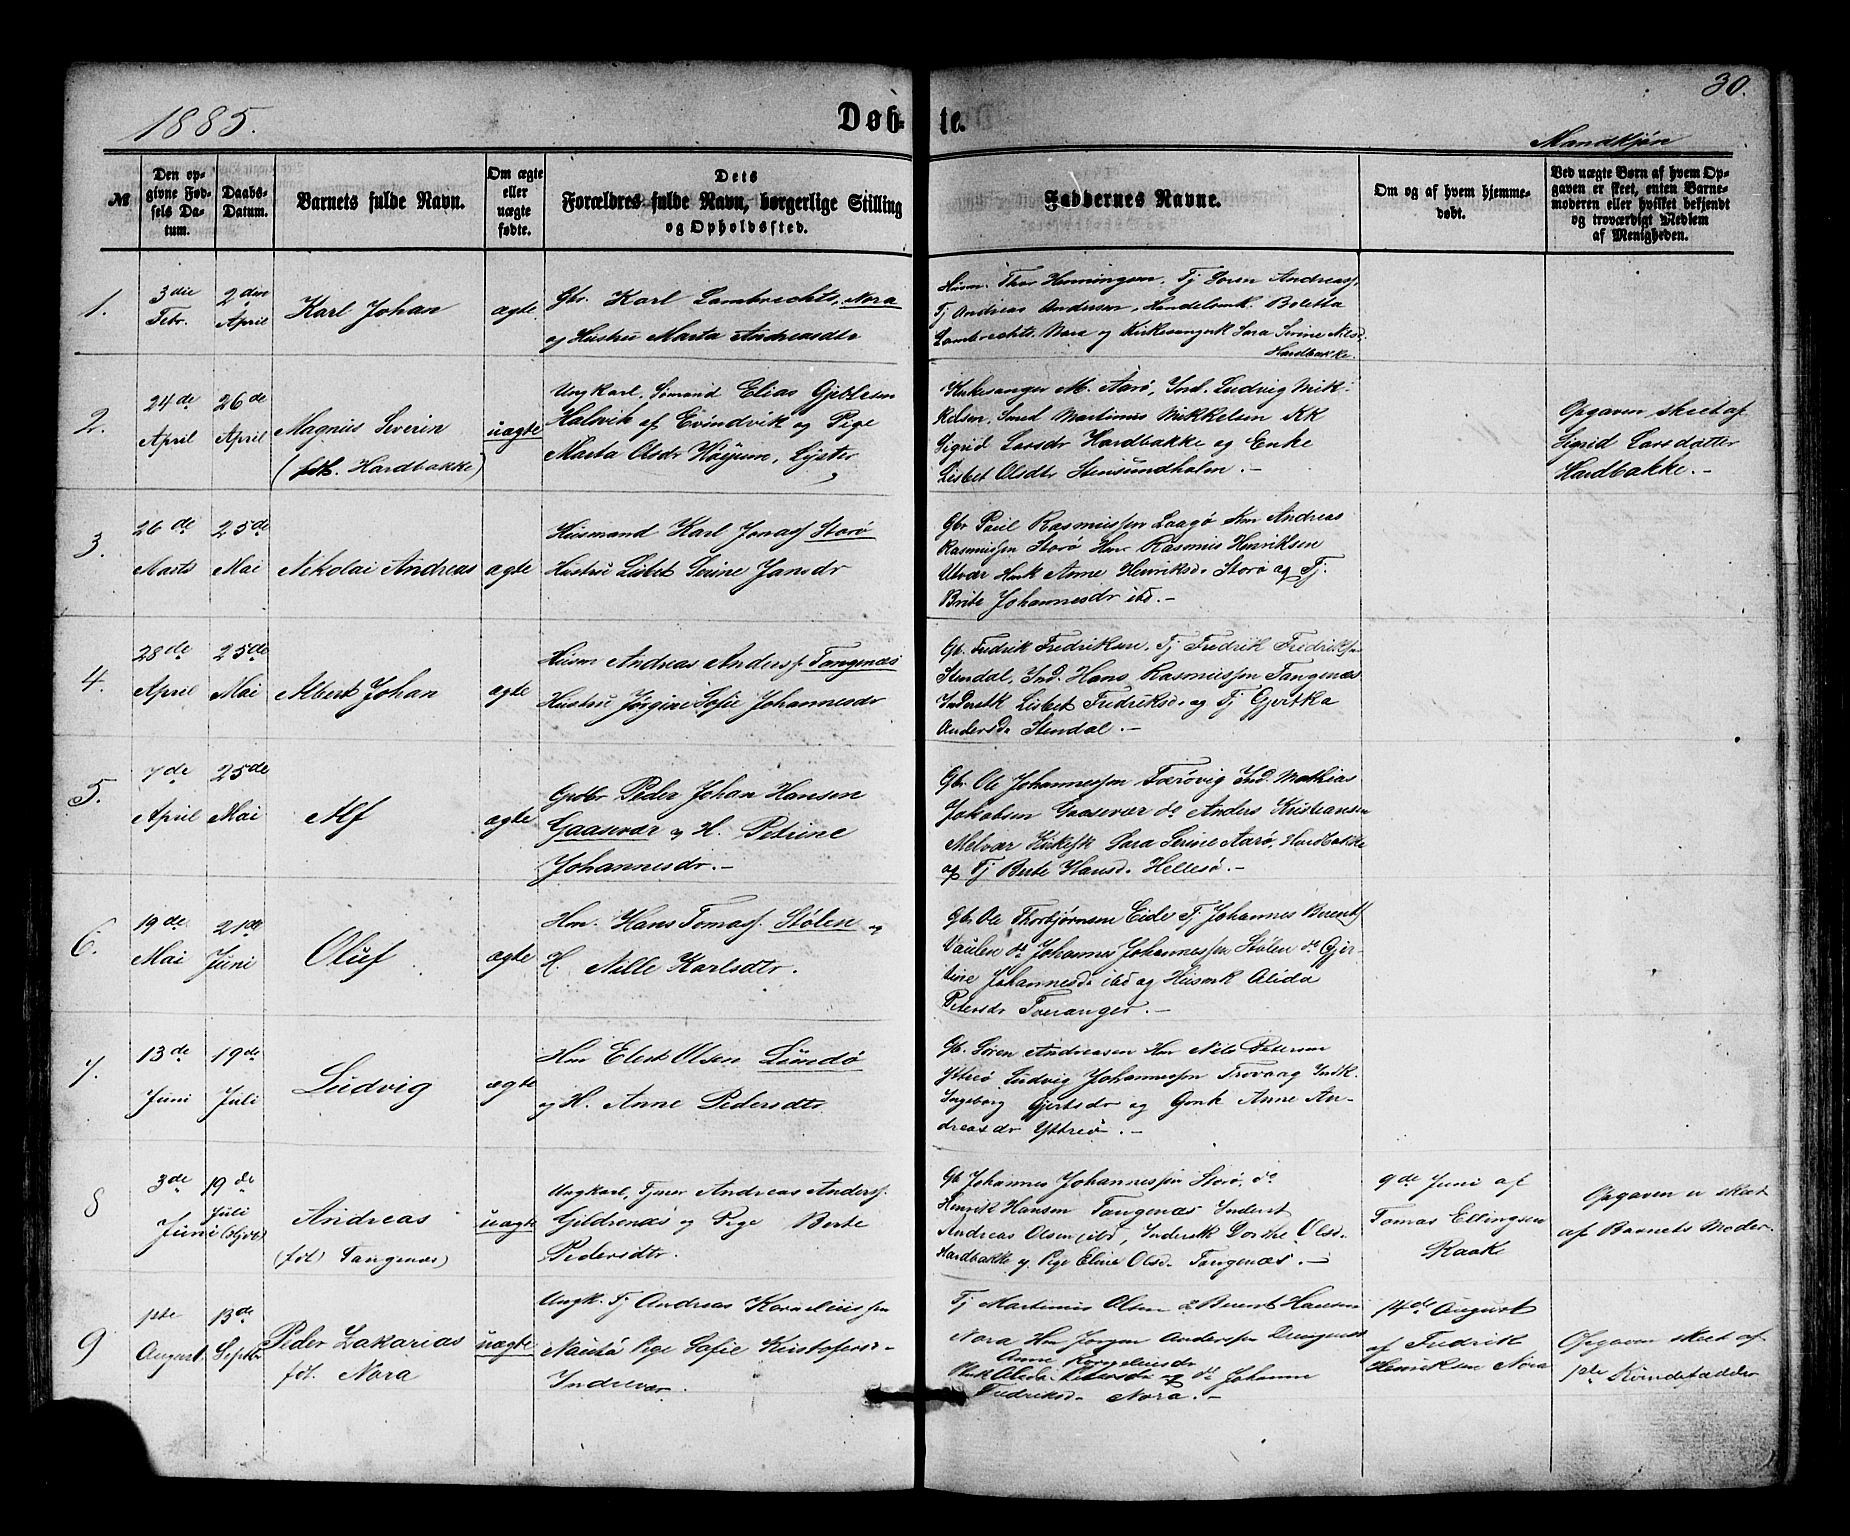 1885.
Døb-
te.
30.
Mandkjøn
№
Den op-
givne Fød-
sels Da-
tum.
Daabs-
Datum.
Barnets fulde Navn.
Om ægte
eller
uægte
fødte.
Dets
Forældres fulde Navn, borgerlige Stilling
og Opholdssted.
Faddernes Navne.
Om og af hvem hjemme-
døbt.
Ved uægte Børn af hvem Op-
gaven er skeet, enten Barne-
moderen eller hvilket bekjendt
og troværdigt Medlem
af Menigheden.
1.
3die
Febr.
2den
April
Karl Johan
ægte
Gbr. Karl Lambrechts, Nora
og Hustru Marta Andreasdtr
Husm. Thor Henningsen, Tj Søren Andreasf,
Tj Andreas Andersen, Handelsmk Boletta
Lambrechts Nora og Kirkesangerk Sara Serine Nilsd.
Hardbakke.
2.
24de
April
26de
April
Magnus Severin
(føt. Hardbakke)
uægte
Ungkarl, Sømand Elias Gjertsen
Halvik af Evindvik og Pige
Marta Olsdr Høyum, Lyster
Kirkesanger M. Aarø, Ind. Ludvig Mik-
kelsen, Smed Martinus Mikkelsen KK
Sigrid Larsdr Hardbakke og Enke
Lisbet Olsdtr Stensundholm.-
Opgaven skeet af
Sigrid Larsdatter
Hardbakke.-
3.
26de
Marts
25de
Mai
Nikolai Andreas
ægte
Husmand Karl Jonasf Storø
Hustru Lisbet Serine Jansdr
Gbr Paul Rasmussen Laagø Hm Andreas
Rasmussen Storø Hm Rasmus Henriksen
Utvær Hmk Anne Henriksd. Storø og Tj.
Brite Johannesdr ibd.-
4.
28de
April
25de
Mai
Albert Johan
ægte
Husm Andreas Andersf. Tangenæs
Hustru Jørgine Sofie Johannesdr
Gb. Fredrik Fredriksen, Tj Fredrik Fredriksen
Stendal, Ind. Hans Rasmussen Tangenæs
Inderstk Lisbet Fredriksd. og Tj Gjertka
Andersd. Stendal.-
5.
7de
April
25de
Mai
Alf
ægte
Gbr Peder Johan Hansen
Gaasevær og H. Petrine
Johannesdr.-
Gb. Ole Johannessen Færøvig Ind. Mathias
Jakobsen Gaasevær do Anders Kristiansen
Melvær Kirkesk Sara Serine Aarø, Hardbakke
og Tj Berte Hansd. Hellesø.-
6.
19de
Mai
21de
Juni
Oluf
ægte
Hm. Hans Tomasf. Stølen og
H. Nille Karlsdtr.
Gb. Ole Thorbjørnsen Eide Tj Johannes Berentsf
Vaulen do Johannes Johannessen Stølen do Gjer-
tine Johannesd. ibd og Husmk Alida
Petersdr Tveranger.-
7.
13de
Juni
19de
Juli
Ludvig
ægte
Hm Elert Olsen Lundø
og H. Anne Pedersdtr
Gb. Søren Andreasen Hm Nils Petersen
Ytterø Ludvig Johannessen Trovaag Indk.
Ingeborg Gjertsdr og Gmk Anne An-
dreasdr Ytterø.-
8
3de
Juni
19de
Juli
Andreas
(føt) Tangenæs)
uægte
Ungkarl, Tjener Andreas Andersf.
Gildrenæs og Pige Berte
Pedersdtr.
Gb Johannes Johannessen Storø, do
Henrik Hansen Tangenæs Inderst
Andreas Olsen ibd, Inderstk Dorthe Olsd.
Hardbakke og Pige Eline Olsd. Tangenæs.-
9de Juni af
Tomas Ellingsen
Raake
Opgaven er skeet
af Barnets Moder.
9
1ste
August.
13de
Septbr
Peder Zakarias
føt. Nora
uægte
Ungk. Tj Andreas Korneliussen
Nautø Pige Sofie Kristofersd.
Indrevær.
Tj Martinus Olsen & Berent Hansen
Nora Hm Jørgen Anderssen
Anne Korneliusdr
Alida Petersdr og do Johanna
Fredriksd. Nora.-
14de August
af Fredrik
Henriksen Nora
Opgaven skeet af
1ste Kvindefadder